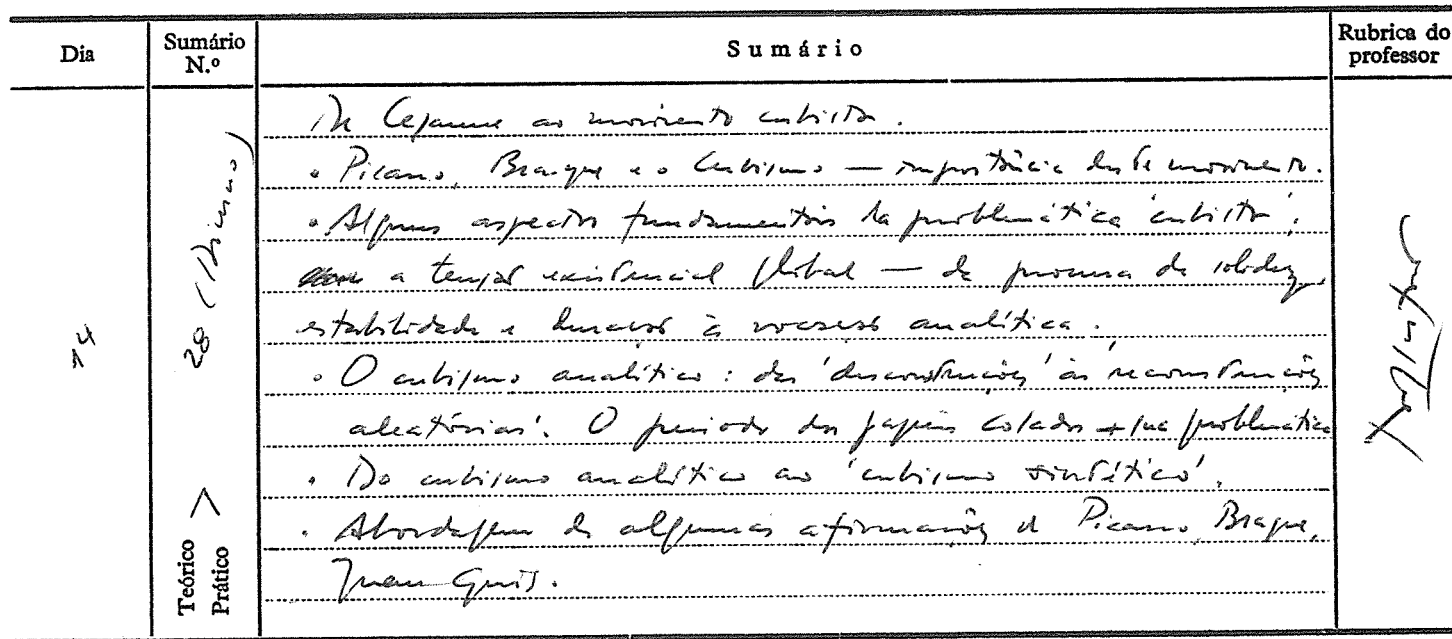 Dia
Sumário N.º
Sumário
Rubrica do professor
14
28 (Diurno)
Teórico > Prático
De Cezanne ao movimento cubista.
. Picasso, Braque e o Cubismo — importância deste movimento.
. Alguns aspectos fundamentais da problemática 'cubista':
a tensão existencial global — da procura de solidez,
estabilidade e duração à vocação analítica.
. O cubismo analítico: das 'desconstruções' às reconstruções
aleatórias'. O período dos papéis colados + sua problemática
. Do cubismo analítico ao 'cubismo sintético'.
. Abordagem de algumas afirmações de Picasso, Braque,
Juan Gris.